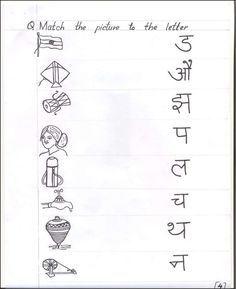 Q Match the picture to the letter
ड
औ
झ
प
ल
च
थ
न
[4]